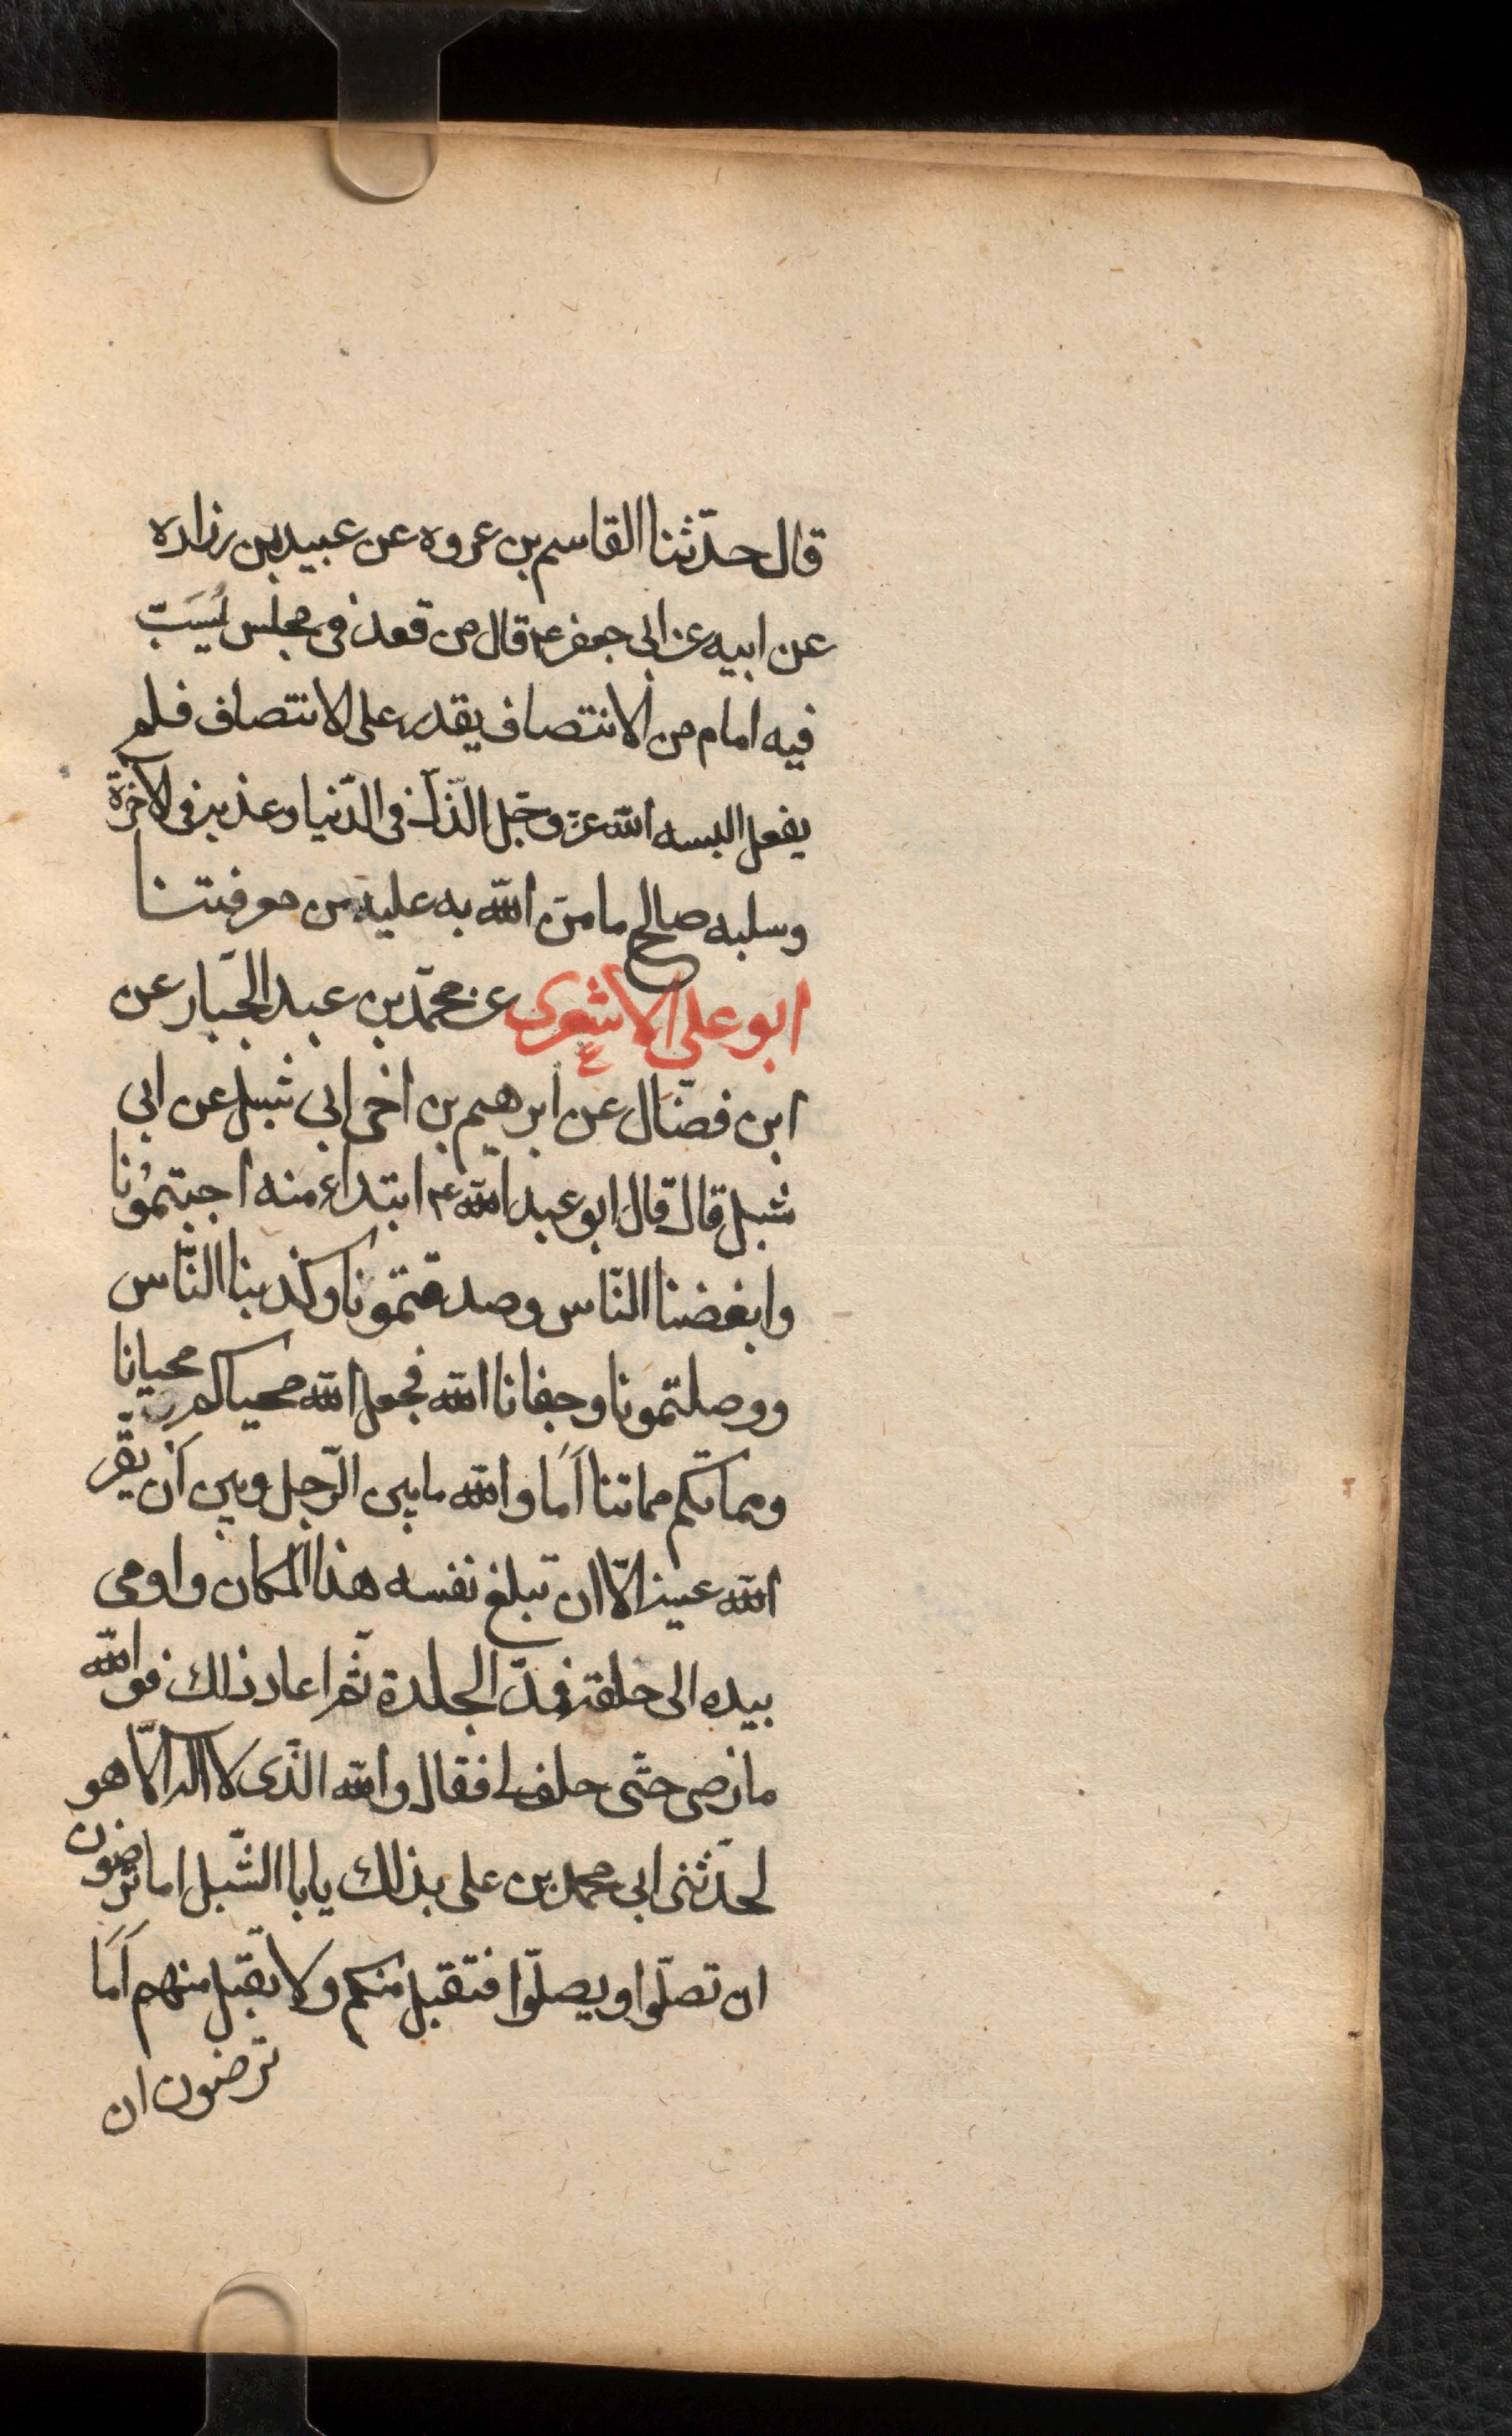 قال حدّثنا القاسم بن عروه عن عبيد بن زراره
عن ابيه عن ابى جعفر ع قال من قعد فى مجلس يُسَبّ
فيه امام من الانتصاف يقدر على الانتصاف فلم
يفعل البسه الله عزّ وجّل الذّل فى الدّنيا وعذبه فى الاخرة
وسلبه صالح ما منّ الله به عليه من معرفتنا
ابو على الاشعرى عن محمّد بن عبد الجّبار عن
ابن فضّال عن ابرهيم بن اخى ابى شبل عن ابى
شبل قال قال ابو عبد الله ع ابتداء منه احببتمُونا
وابغضنا النّاس وصدقتمونا وكذبنا النّاس
ووصلتمونا وجفانا الله فجعل الله محياكم محيانا
ومماتكم مماتنا اَمَا والله ما بين الرّجل وبين اَن يقّر
الله عينه الاّ ان تبلغ نفسه هذا المكان واومى
بيده الى حلقه فمدّ الجلدة ثمّ اعاد ذلك فو الله
ما رضى حتّى حلف لى فقال والله الذّى لا اله الاّ هو
لحدّثنى ابى محمد بن على بذلك يا با الشّبل اما ترضون
ان تصلّوا ويصلّوا فتقبل منكم ولا تقبّل منهم اَمَا
ترضون ان